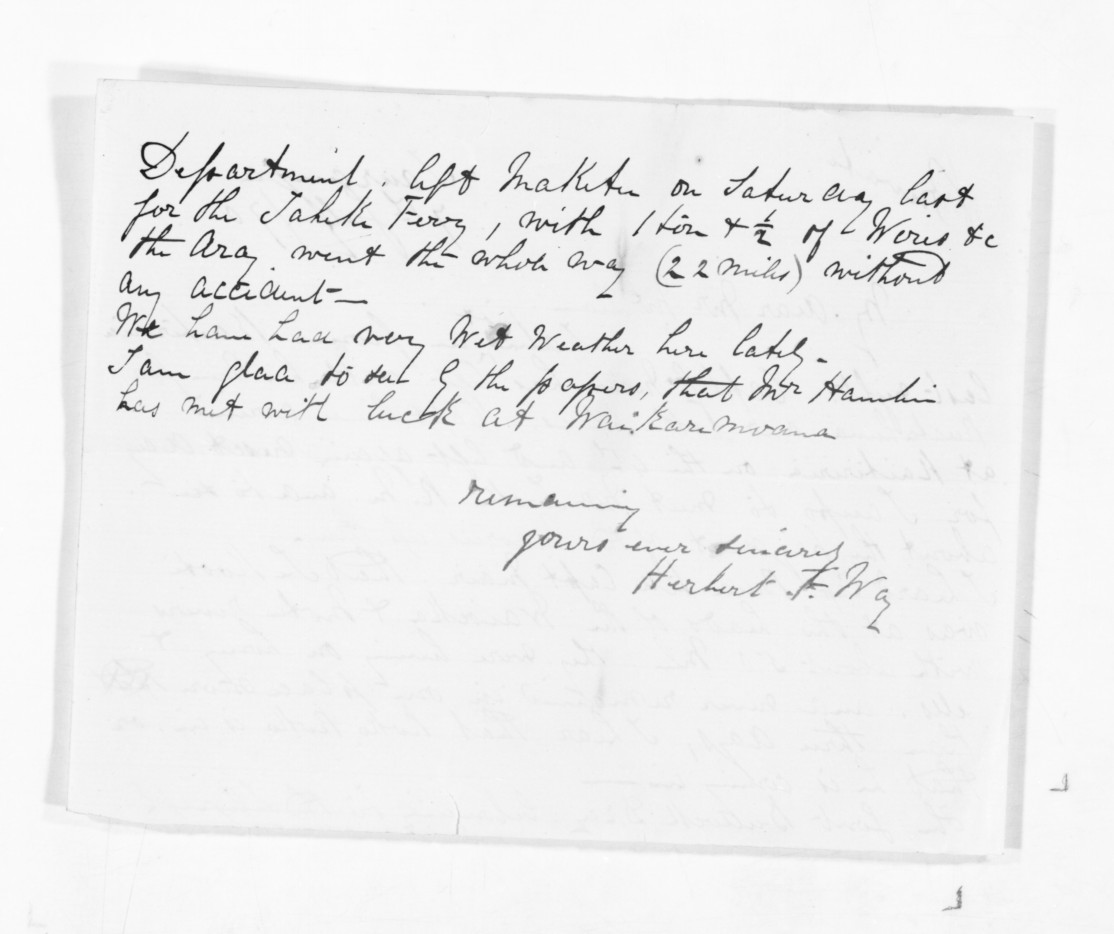 Department. left Maketu on Saturday last
for the Taheke Ferry, with 1 ton & ½ of Wires &c
the dray went the whole way (22 miles) without
any accident—
We have had very Wet Weather here lately.
I am glad to see by the papers, that Mr Hamlin
has met with luck at Waikaremoana
remaining
yours ever sincerely
Herbert F. Way